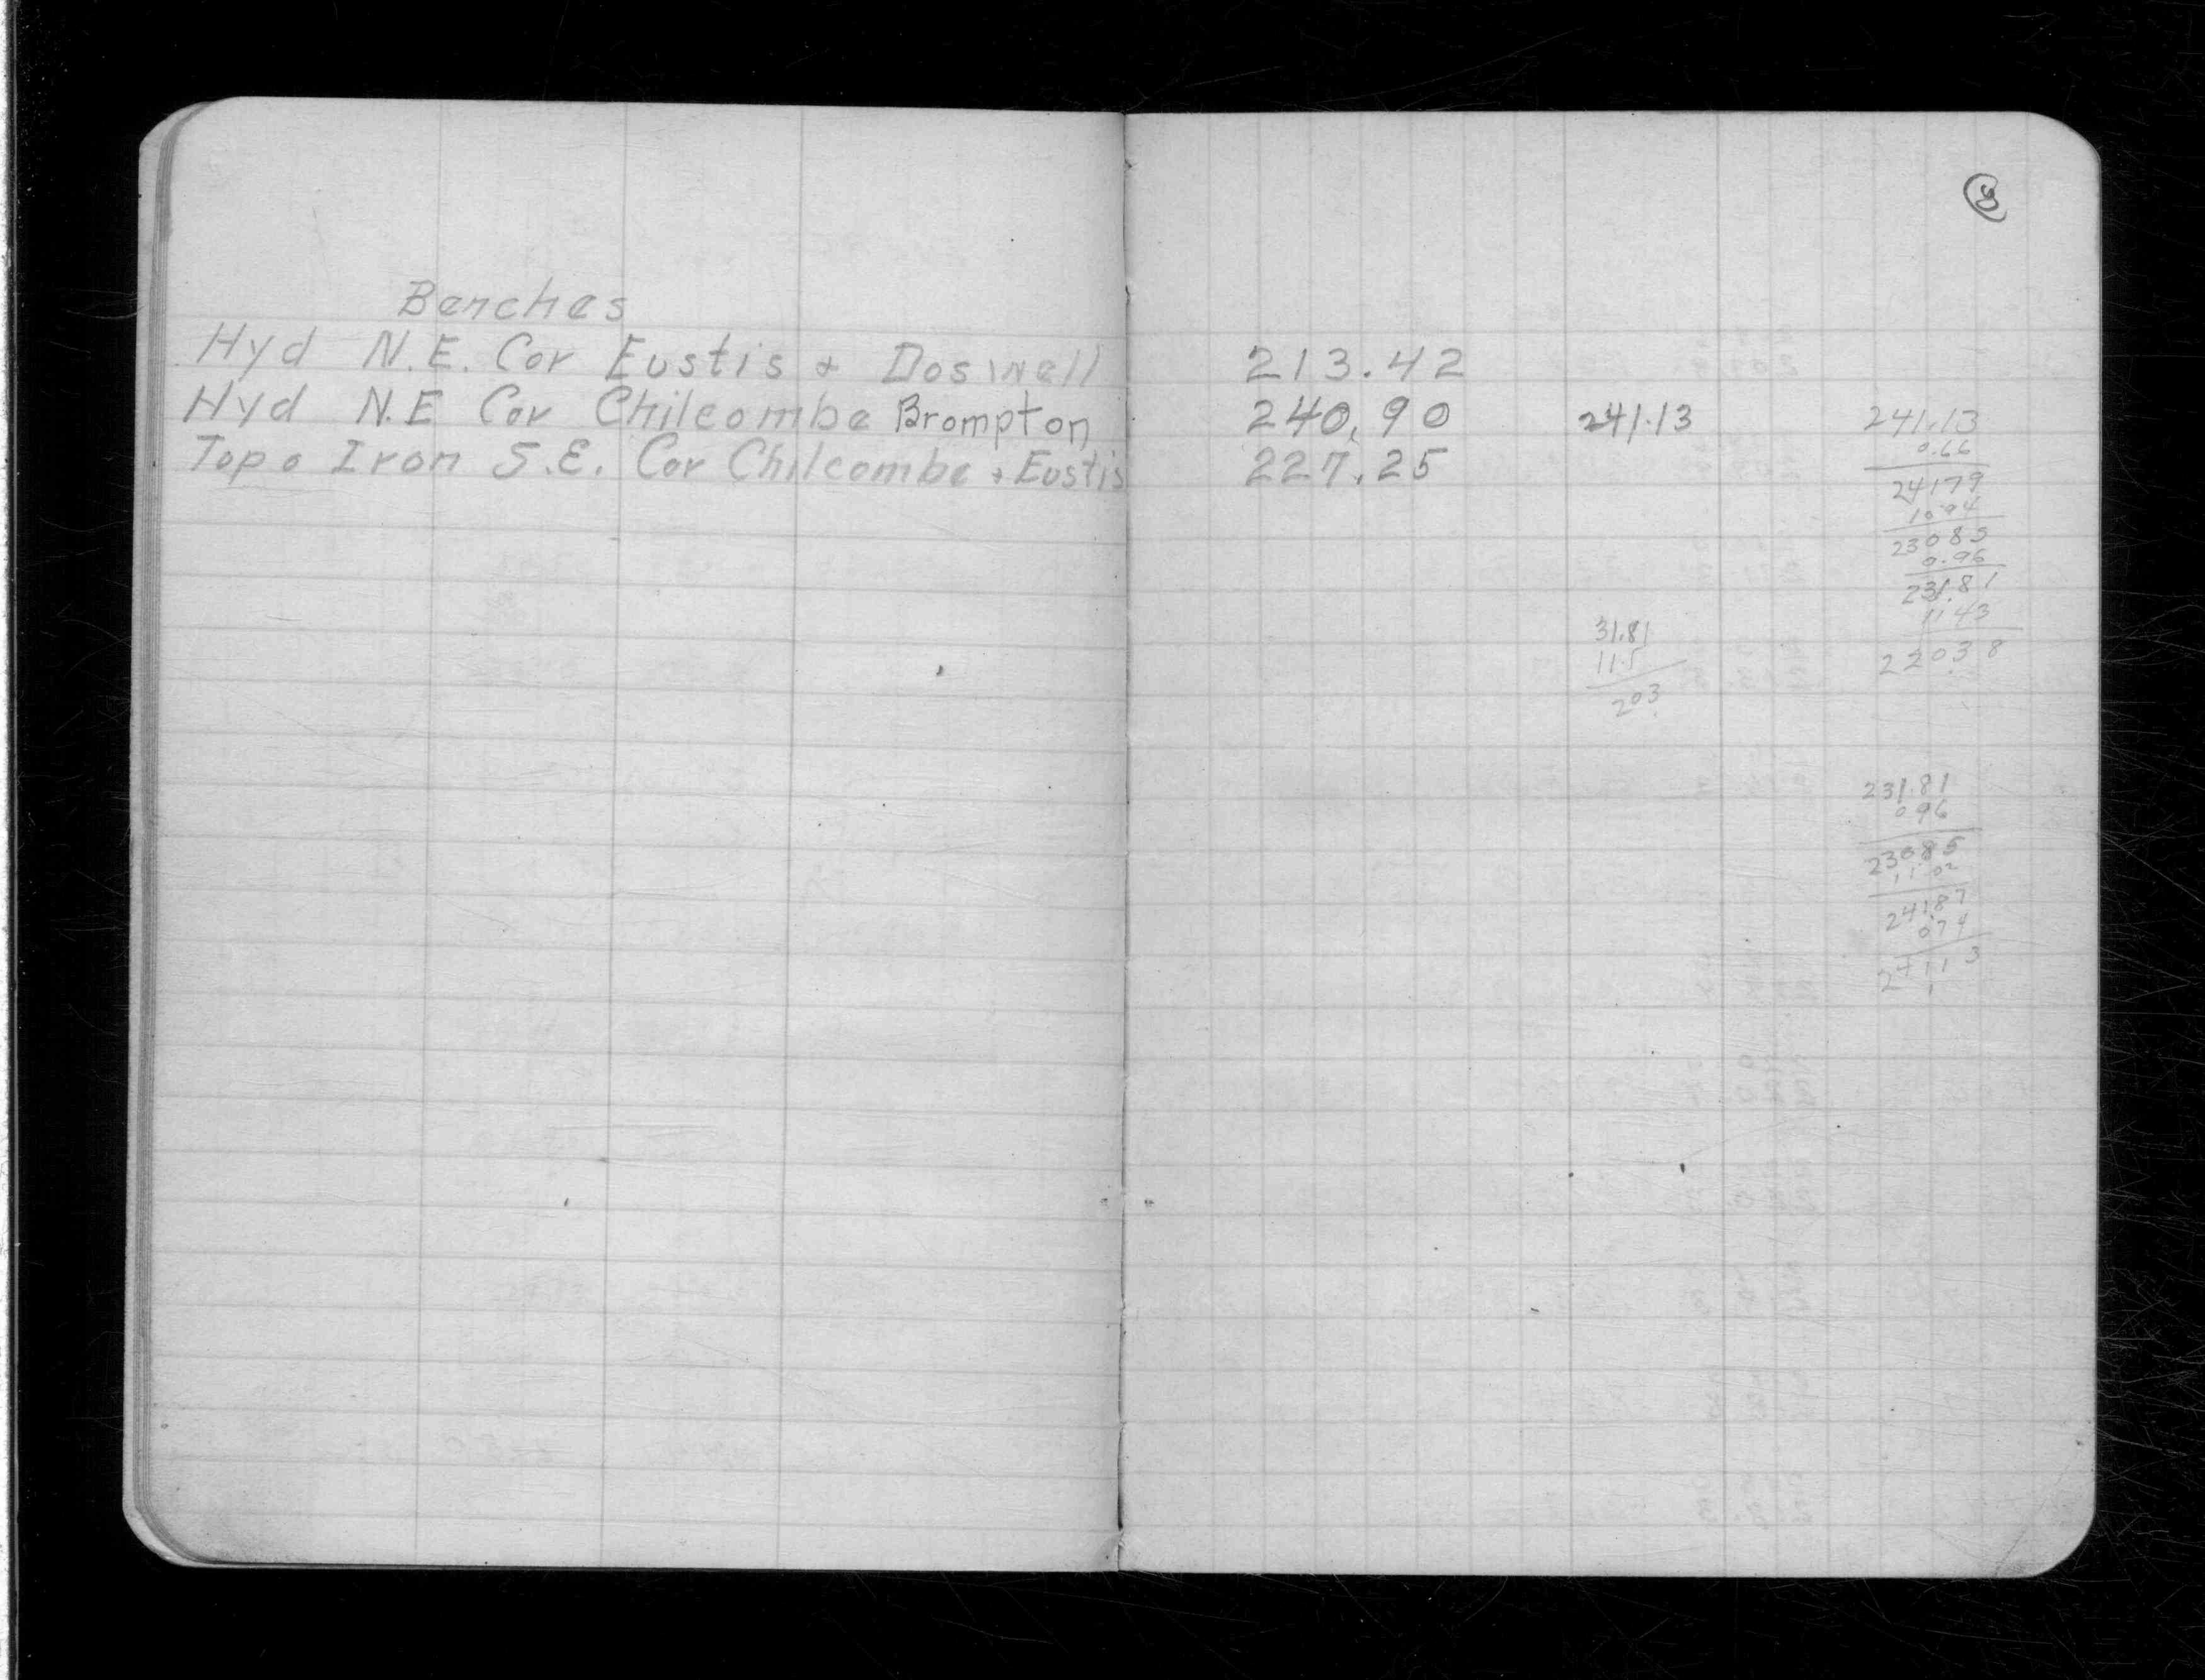 8
Benches
Hyd N.E. Cor Eustis & Doswell 213.42
Hyd N.E Cor Chilcombe Brompton 240.90 241.13
Top o Iron S.E. Cor Chilcombe & Eustis 227.25
241.13
0.66
24179
1094
23085
0.96
231.81
11.43
22038
31.81
11.5
203
231.81
096
23085
1102
241.87
074
24113